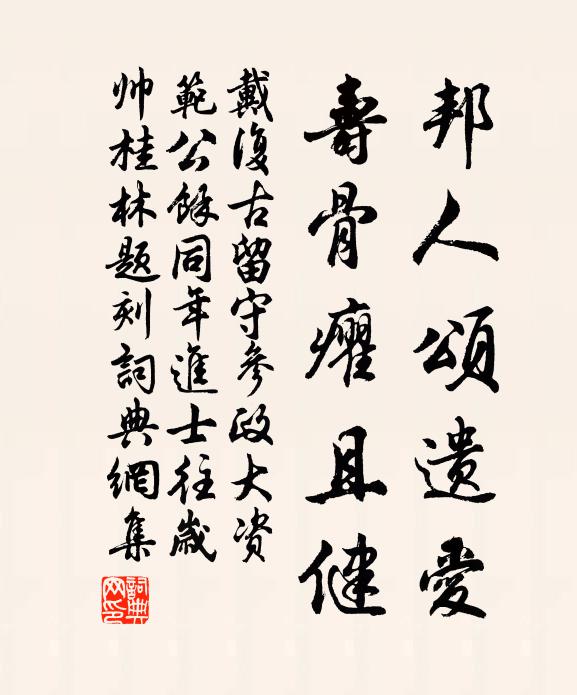 邦人頌遺愛
壽骨癯且健
戴復古留守參政大资
範公餘同年進士往歲
帅桂林題刻詞典網集
詞典网印